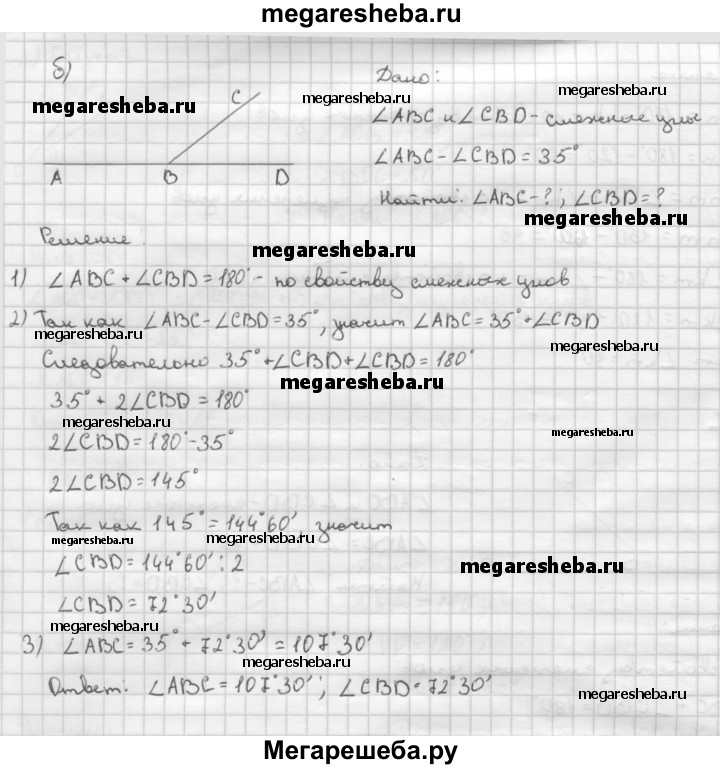 megaresheba.ru
б)
C
A B D
Дано:
∠ABC и ∠CBD - смежные углы
∠ABC - ∠CBD = 35°
Найти: ∠ABC - ?; ∠CBD = ?
megaresheba.ru
megaresheba.ru
megaresheba.ru
megaresheba.ru
Решение:
megaresheba.ru
1) ∠ABC + ∠CBD = 180° - по свойству смежных углов
2) Так как ∠ABC - ∠CBD = 35°, значит ∠ABC = 35° + ∠CBD
megaresheba.ru
megaresheba.ru
Следовательно 35° + ∠CBD + ∠CBD = 180°
megaresheba.ru
35° + 2∠CBD = 180°
megaresheba.ru
megaresheba.ru
2∠CBD = 180° - 35°
2∠CBD = 145°
Так как 145° = 144°60', значит
megaresheba.ru
megaresheba.ru
∠CBD = 144°60' : 2
megaresheba.ru
∠CBD = 72°30'
3) ∠ABC = 35° + 72°30' = 107°30'
megaresheba.ru
Ответ: ∠ABC = 107°30'; ∠CBD = 72°30'
megaresheba.ru
Мегарешеба.ру